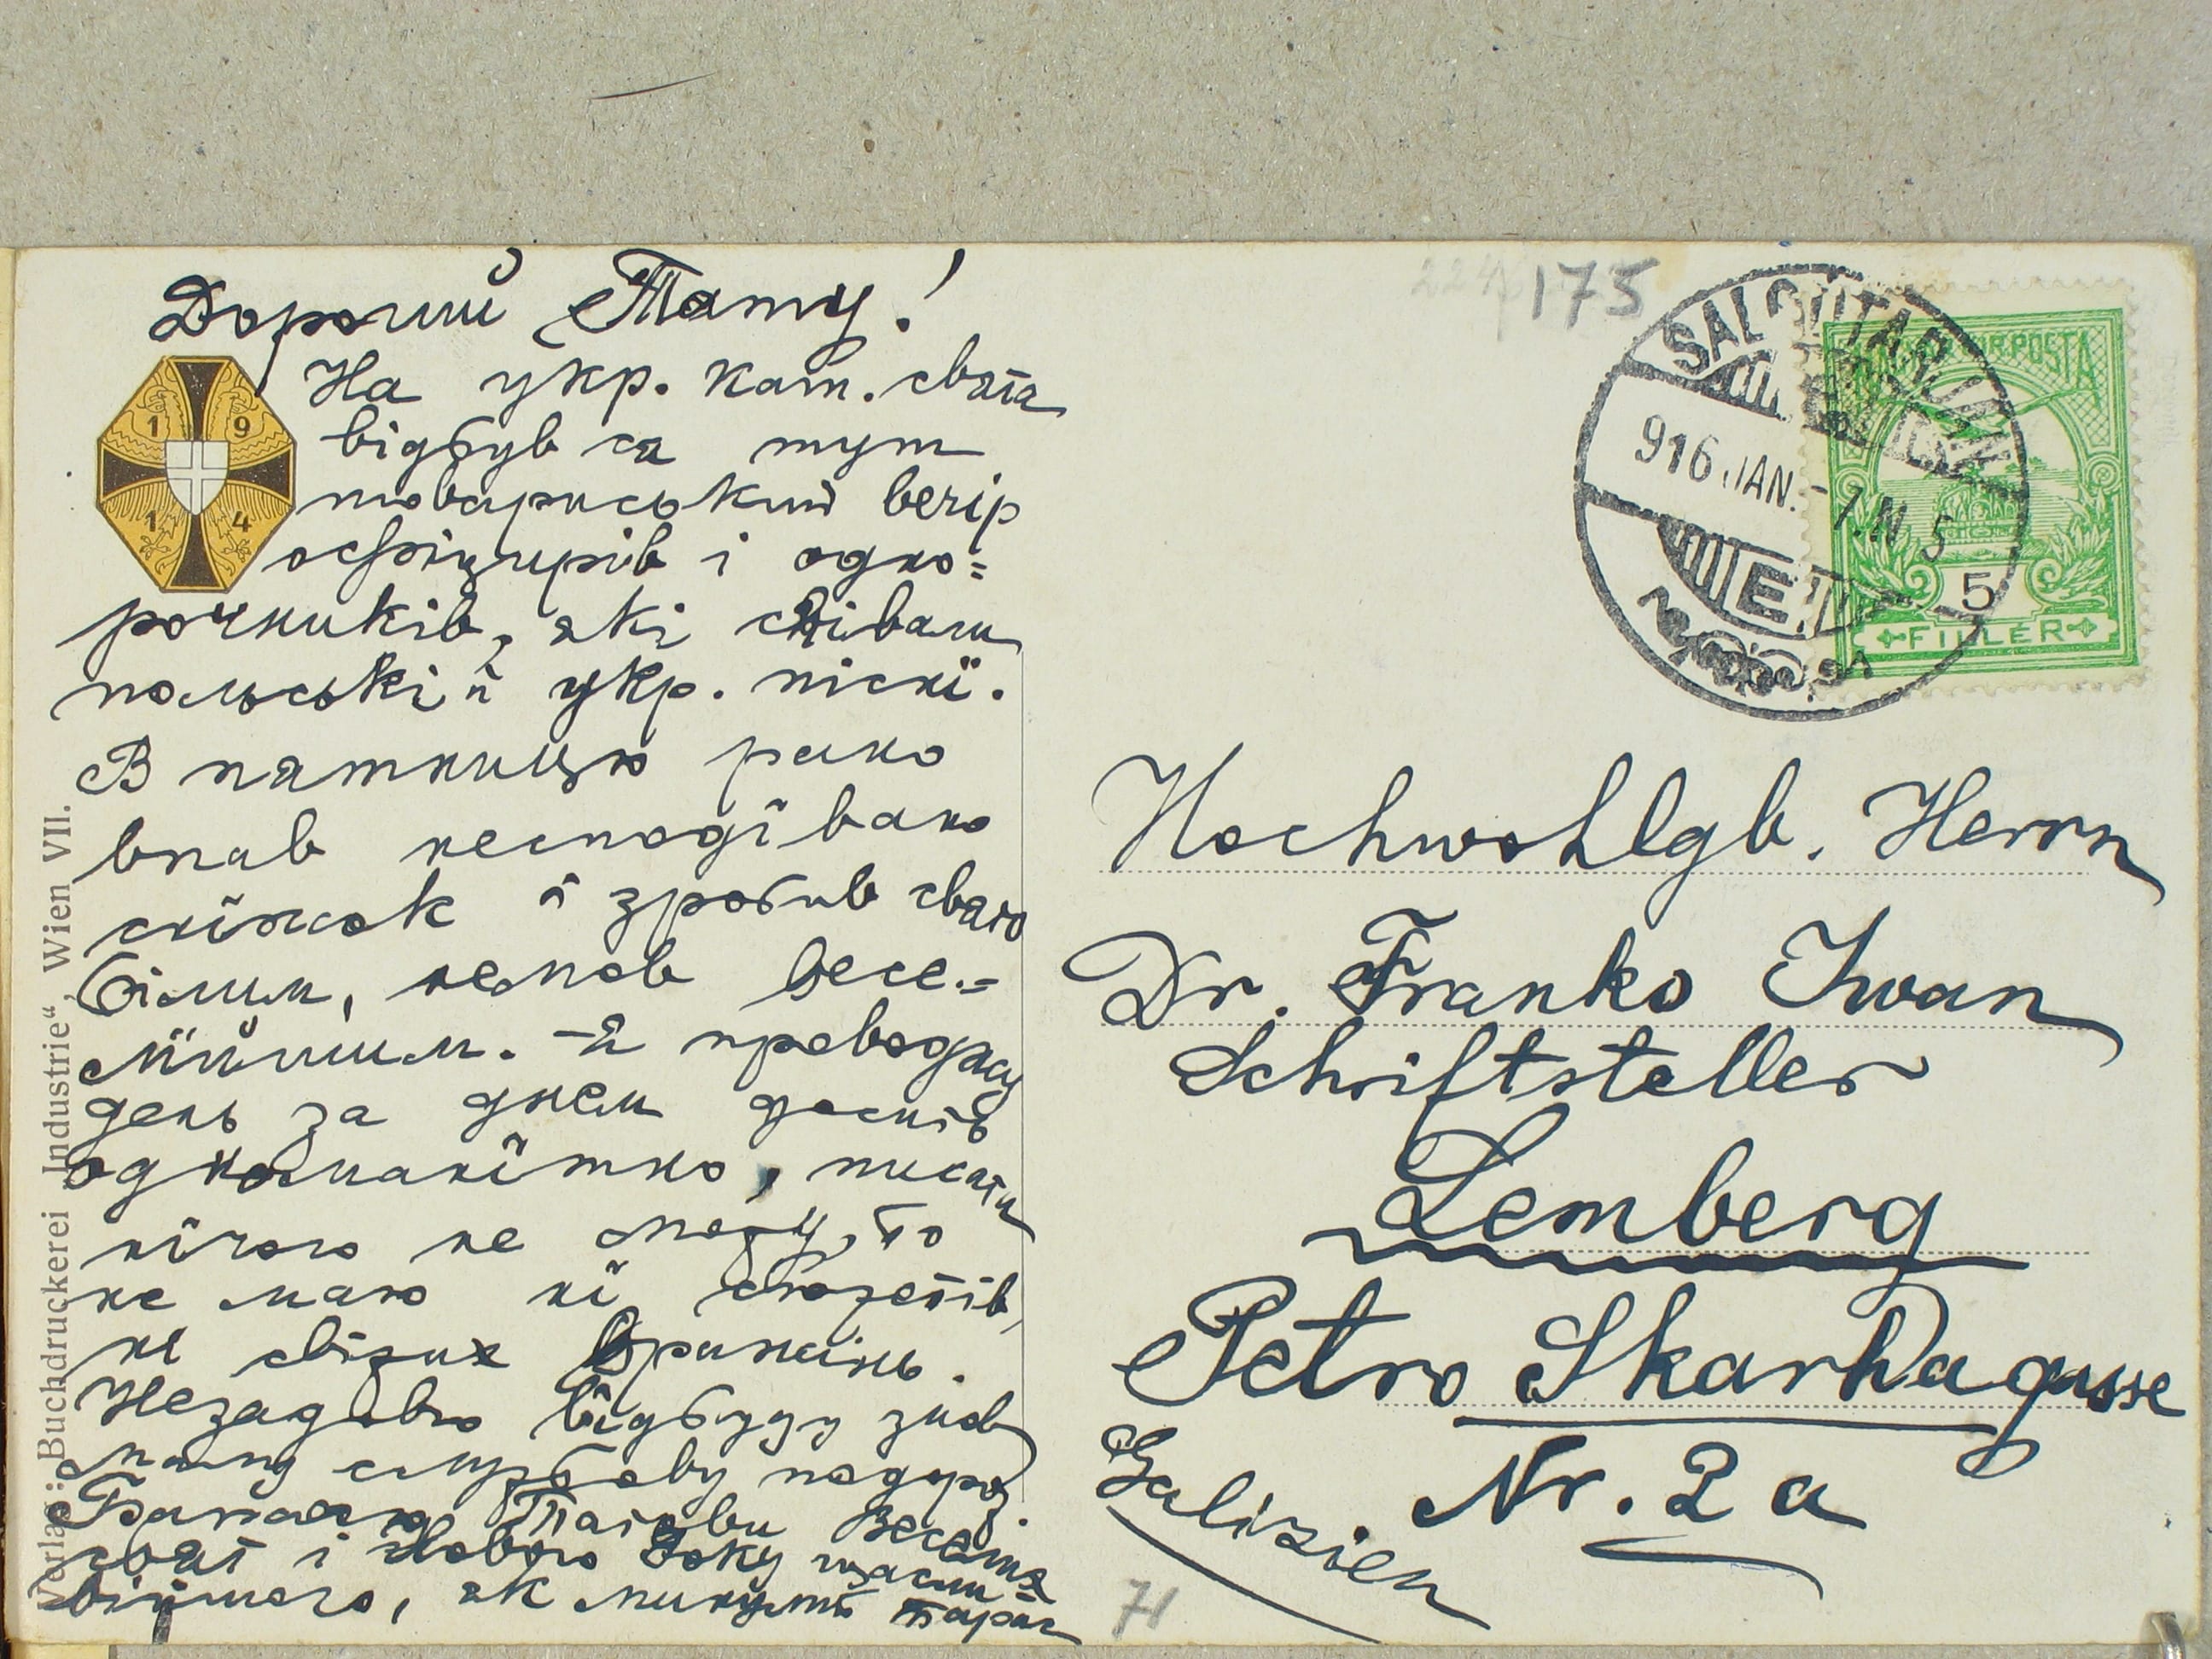 Дорогий Тату!
На укр. кат. свята
відбув ся тут
товариський вечір
офіцирів і одно=
рочників, які співали
польські й укр. пісні.
В пятницю рано
впав несподівано
сніжок і зробив свято
білим, немов весе-
лійшим. - Я проводжу
день за днем досить
одноманітно, писати
нічого не можу, бо
не маю ні
ні свіжих вражінь.
Незадовго відбуду знов
малу службову подорож.
Бажаю Таткови Веселих
свят і Нового Року щасли=
війшого, як минувший. Тарас
Verlag: Buchdruckerei „Industrie“, Wien VII.
1 9
1 4
175
SALGÓTARJÁN
916 JAN. -7. N 5
E.
MAGYAR KIR. POSTA
5
FILLÉR
Hochwohlgb. Herrn
Dr. Franko Iwan
Schriftsteller
Lemberg
Petro Skarhagasse
Nr. 2a
Galizien
71